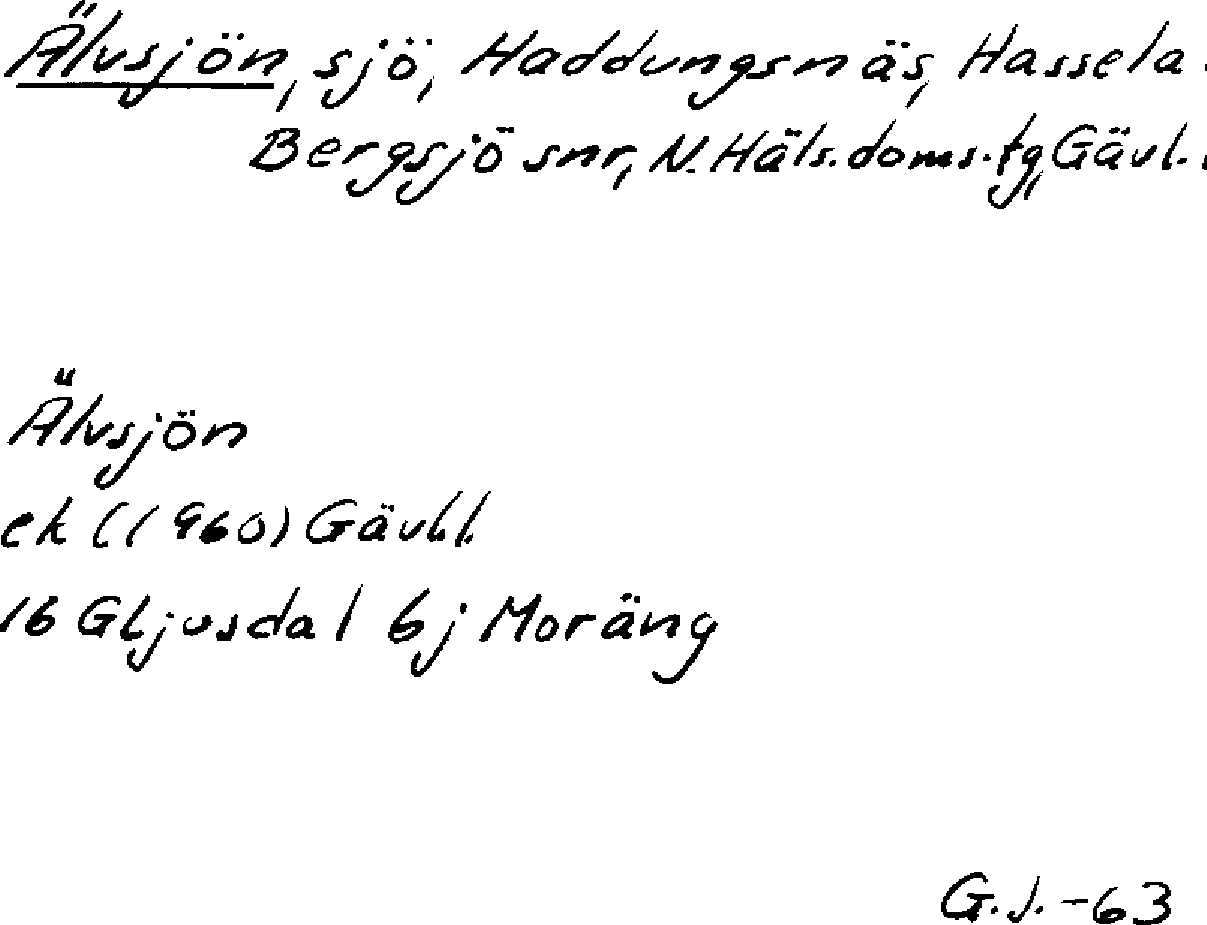 Älvsjön, sjö, Haddungsnäs, Hassela
Bergsjö snr, N. Häls. doms. tg, Gävl.
Älvsjön
ek (1960) Gävl.l.
16 G Ljusdal 6j Moräng
G.J. -63